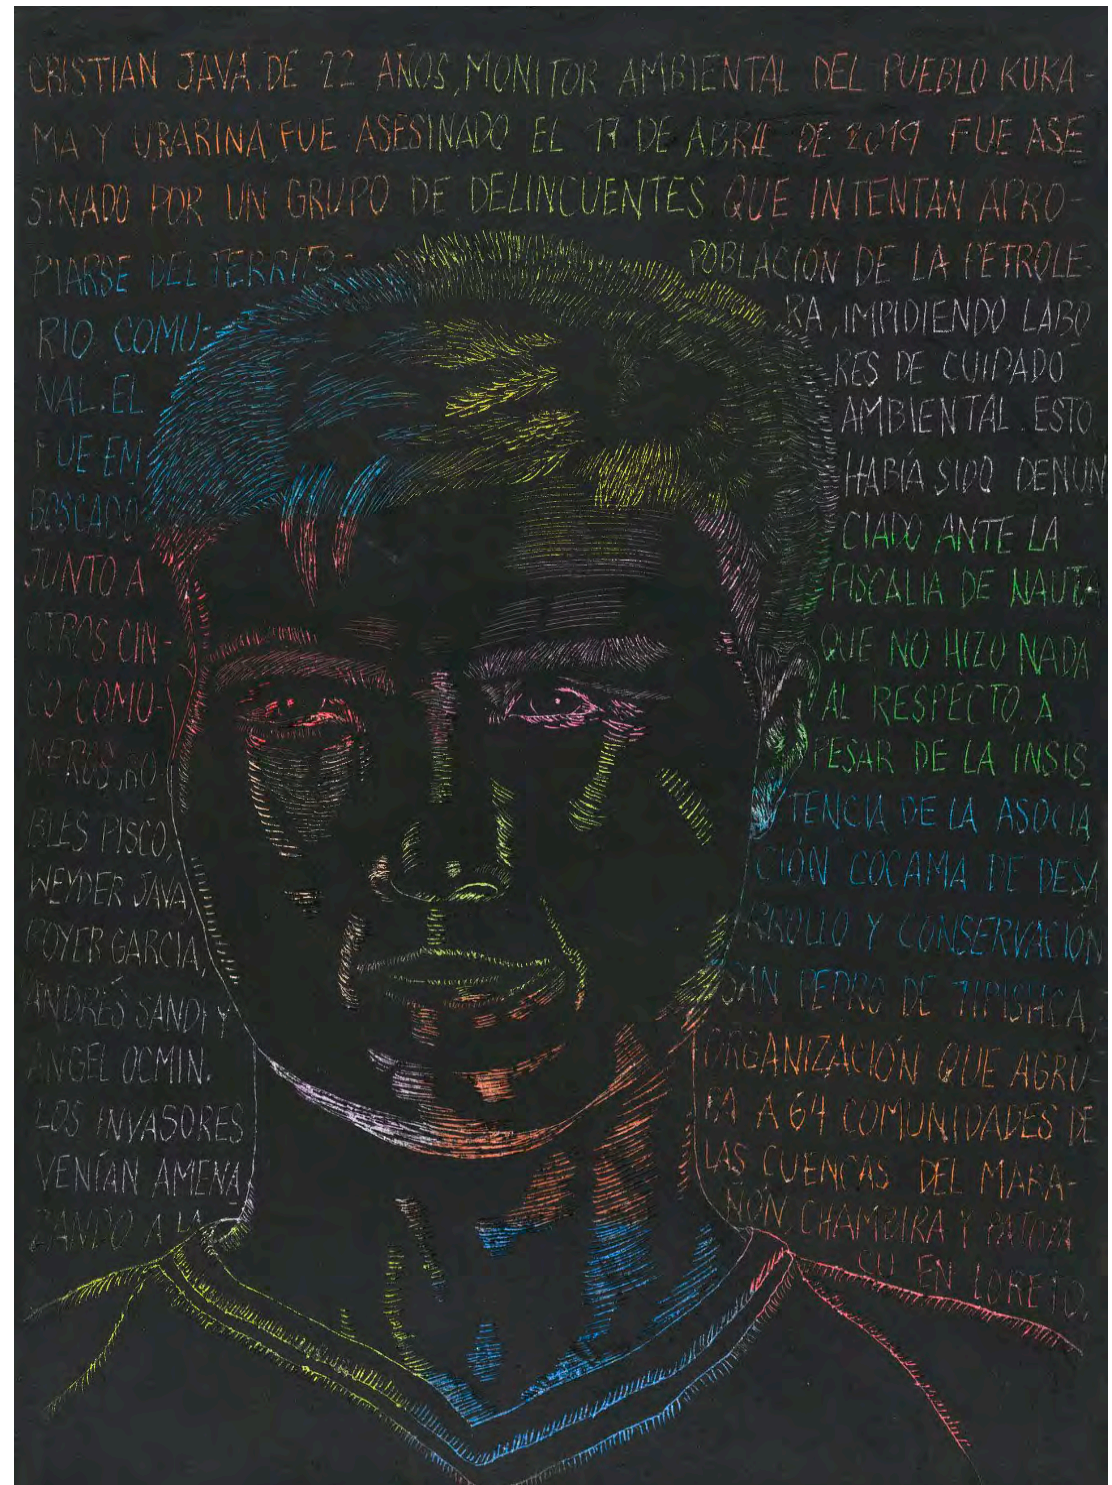 CRISTIAN JAVA, DE 22 AÑOS, MONITOR AMBIENTAL DEL PUEBLO KUKA-
MA Y URARINA, FUE ASESINADO EL 17 DE ABRIL DE 2019 FUE ASE
SINADO POR UN GRUPO DE DELINCUENTES QUE INTENTAN APRO-
PIARSE DEL TERRITO-
RIO COMU-
NAL. EL
FUE EM
BOSCADO
JUNTO A
OTROS CIN-
CO COMU-
NEROS, RO
BLES PISCO,
WEYDER JAVA,
ROYER GARCIA,
ANDRÉS SANDI Y
ANGEL OCMIN.
LOS INVASORES
VENÍAN AMENA
ZANDO A LA
POBLACIÓN DE LA PETROLE-
RA, IMPIDIENDO LABO
RES DE CUIDADO
AMBIENTAL. ESTO
HABÍA SIDO DENUN
CIADO ANTE LA
FISCALIA DE NAUTA
QUE NO HIZO NADA
AL RESPECTO, A
PESAR DE LA INSIS
TENCIA DE LA ASOCIA
CIÓN COCAMA DE DESA
RROLLO Y CONSERVACIÓN
SAN PEDRO DE TIPISHCA,
ORGANIZACIÓN QUE AGRU-
PA A 64 COMUNIDADES DE
LAS CUENCAS DEL MARA-
ÑON, CHAMBIRA Y PATOYA
CU EN LORETO.